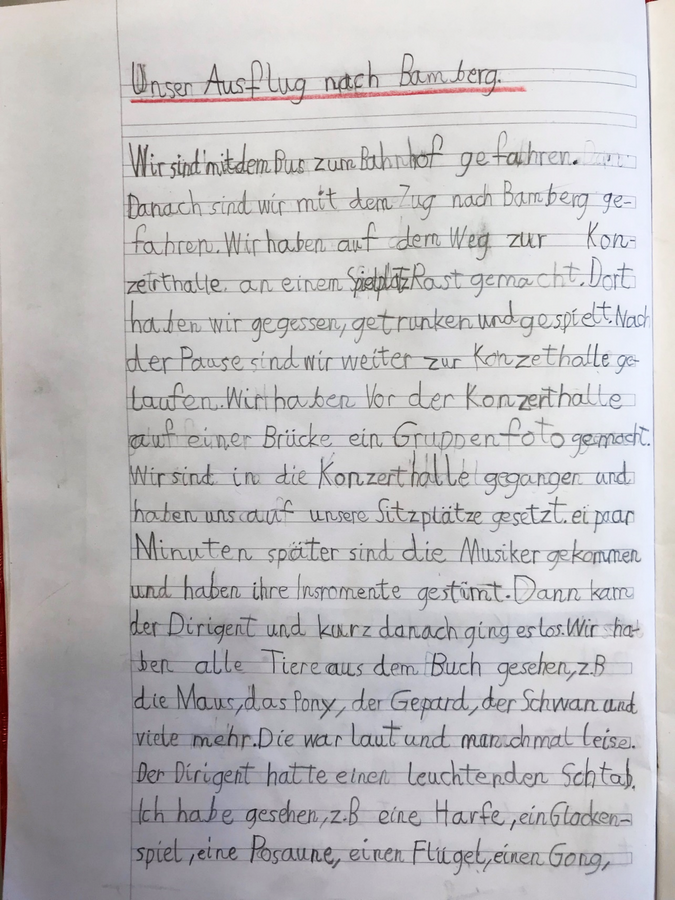 Unser Ausflug nach Bamberg.
Wir sind mit dem Bus zum Bahnhof gefahren.
Danach sind wir mit dem Zug nach Bamberg ge-
fahren. Wir haben auf dem Weg zur Kon-
zetrthalle. an einem Spielplatz Rast gemacht. Dort
haben wir gegessen, getrunken und gespielt. Nach
der Pause sind wir weiter zur Konzethalle ge-
laufen. Wir haben Vor der Konzerthalle
auf einer Brücke ein Gruppenfoto gemacht.
Wir sind in die Konzerthalle gegangen und
haben uns auf unsere Sitzplätze gesetzt. ei paar
Minuten später sind die Musiker gekommen
und haben ihre Insromente gestümt. Dann kam
der Dirigent und kurz danach ging es los. Wir ha-
ben alle Tiere aus dem Buch gesehen, z.B
die Maus, das Pony, der Gepard, der Schwan und
viele mehr. Die war laut und manchmal leise.
Der Dirigent hatte einen leuchtenden Schtab.
Ich habe gesehen, z.B eine Harfe, ein Glocken-
spiel, eine Posaune, einen Flügel, einen Gong,